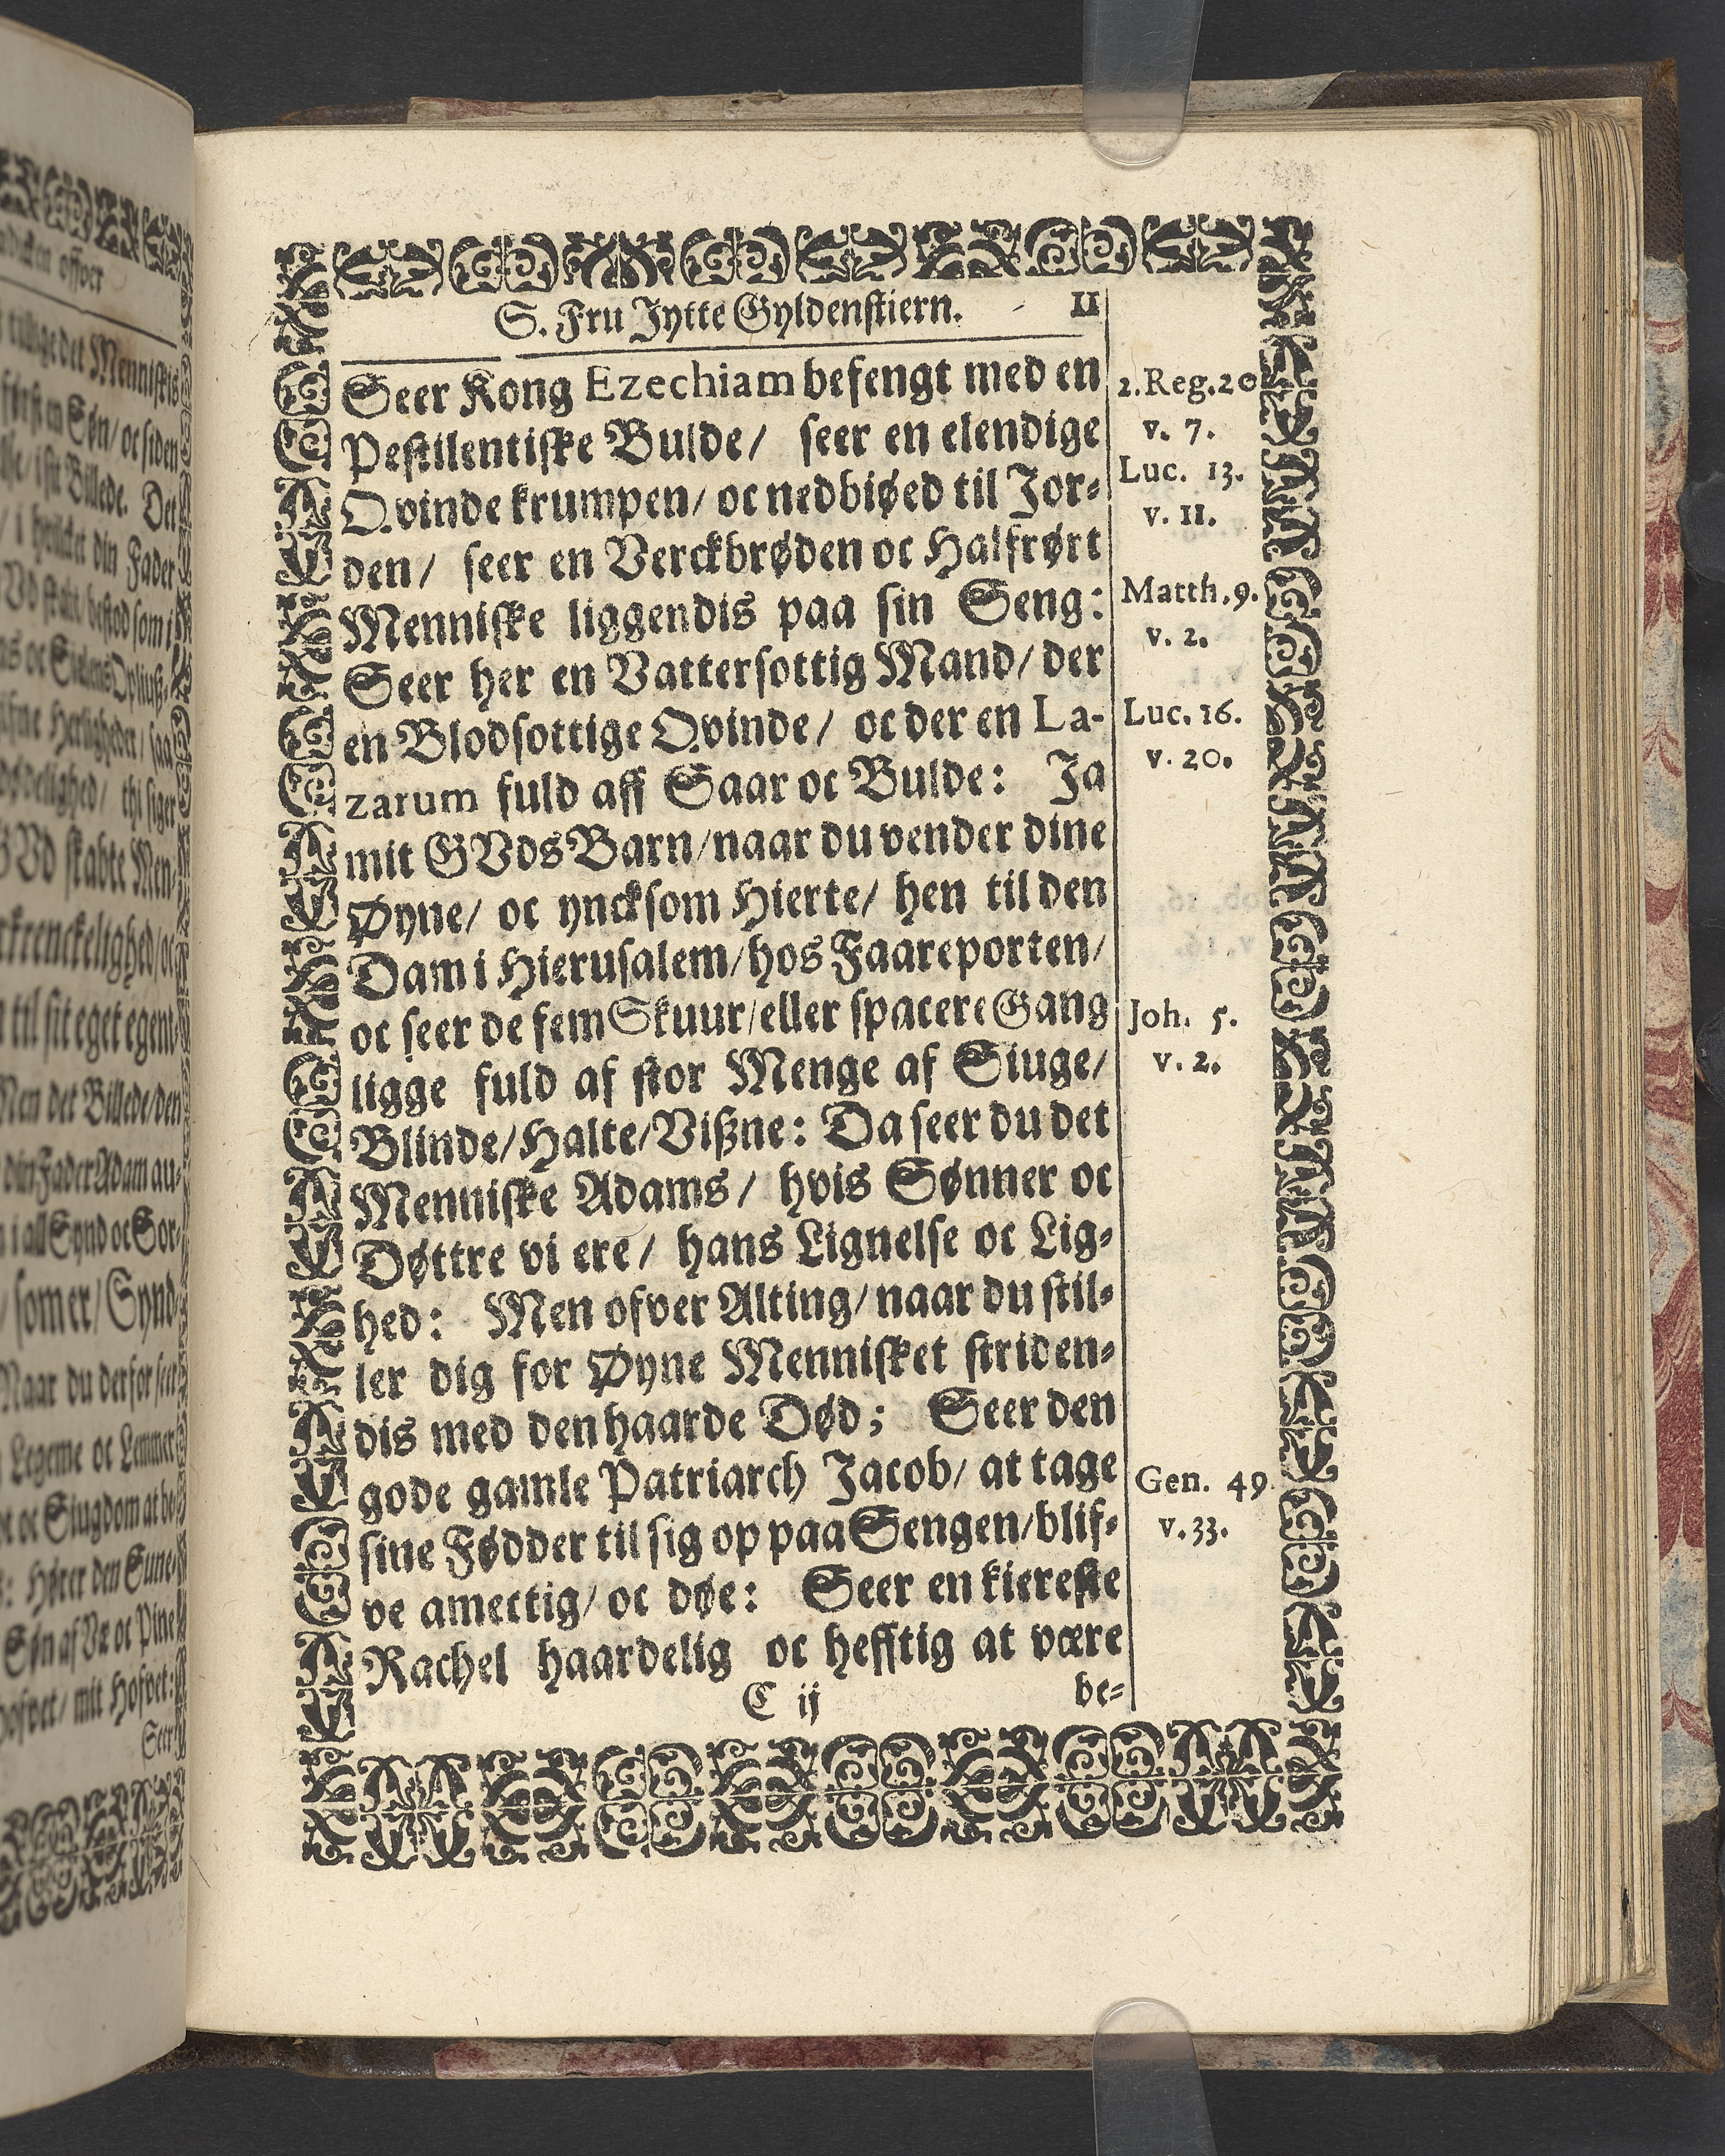 S. Fru Jytte Gyldenstiern. 11
Seer Kong Ezechiam befengt med en
Pestilentiske Bulde/ seer en elendige
Qvinde krumpen/ oc nedbiøed til Jor-
den/ seer en Verckbrøden oc Halfrørt
Menniske liggendis paa sin Seng:
Seer her en Vattersottig Mand/ der
en Blodsottige Qvinde/ oc der en La-
zarum fuld aff Saar oc Bulde: Ja
mit GVds Barn/ naar du vender dine
Øyne/ oc yncksom Hierte/ hen til den
Dam i Hierusalem/ hos Faareporten/
oc seer de fem Skuur/ eller spacere Gang
ligge fuld af stor Menge af Siuge/
Blinde/ Halte/ Vißne: Da seer du det
Menniske Adams/ hvis Sønner oc
Døttre vi ere/ hans Lignelse oc Lig-
hed: Men ofver Alting/ naar du stil-
ler dig for Øyne Mennisket striden-
dis med den haarde Død; Seer den
gode gamle Patriarch Jacob/ at tage
sine Fødder til sig op paa Sengen/ blif-
ve amectig/ oc døe: Seer en kiereste
Rachel haardelig oc hefftig at være
C ij be-
2. Reg. 20
v. 7.
Luc. 13.
v. 11.
Matth. 9.
v. 2.
Luc. 16.
v. 20.
Joh. 5.
v. 2.
Gen. 49
v. 33.